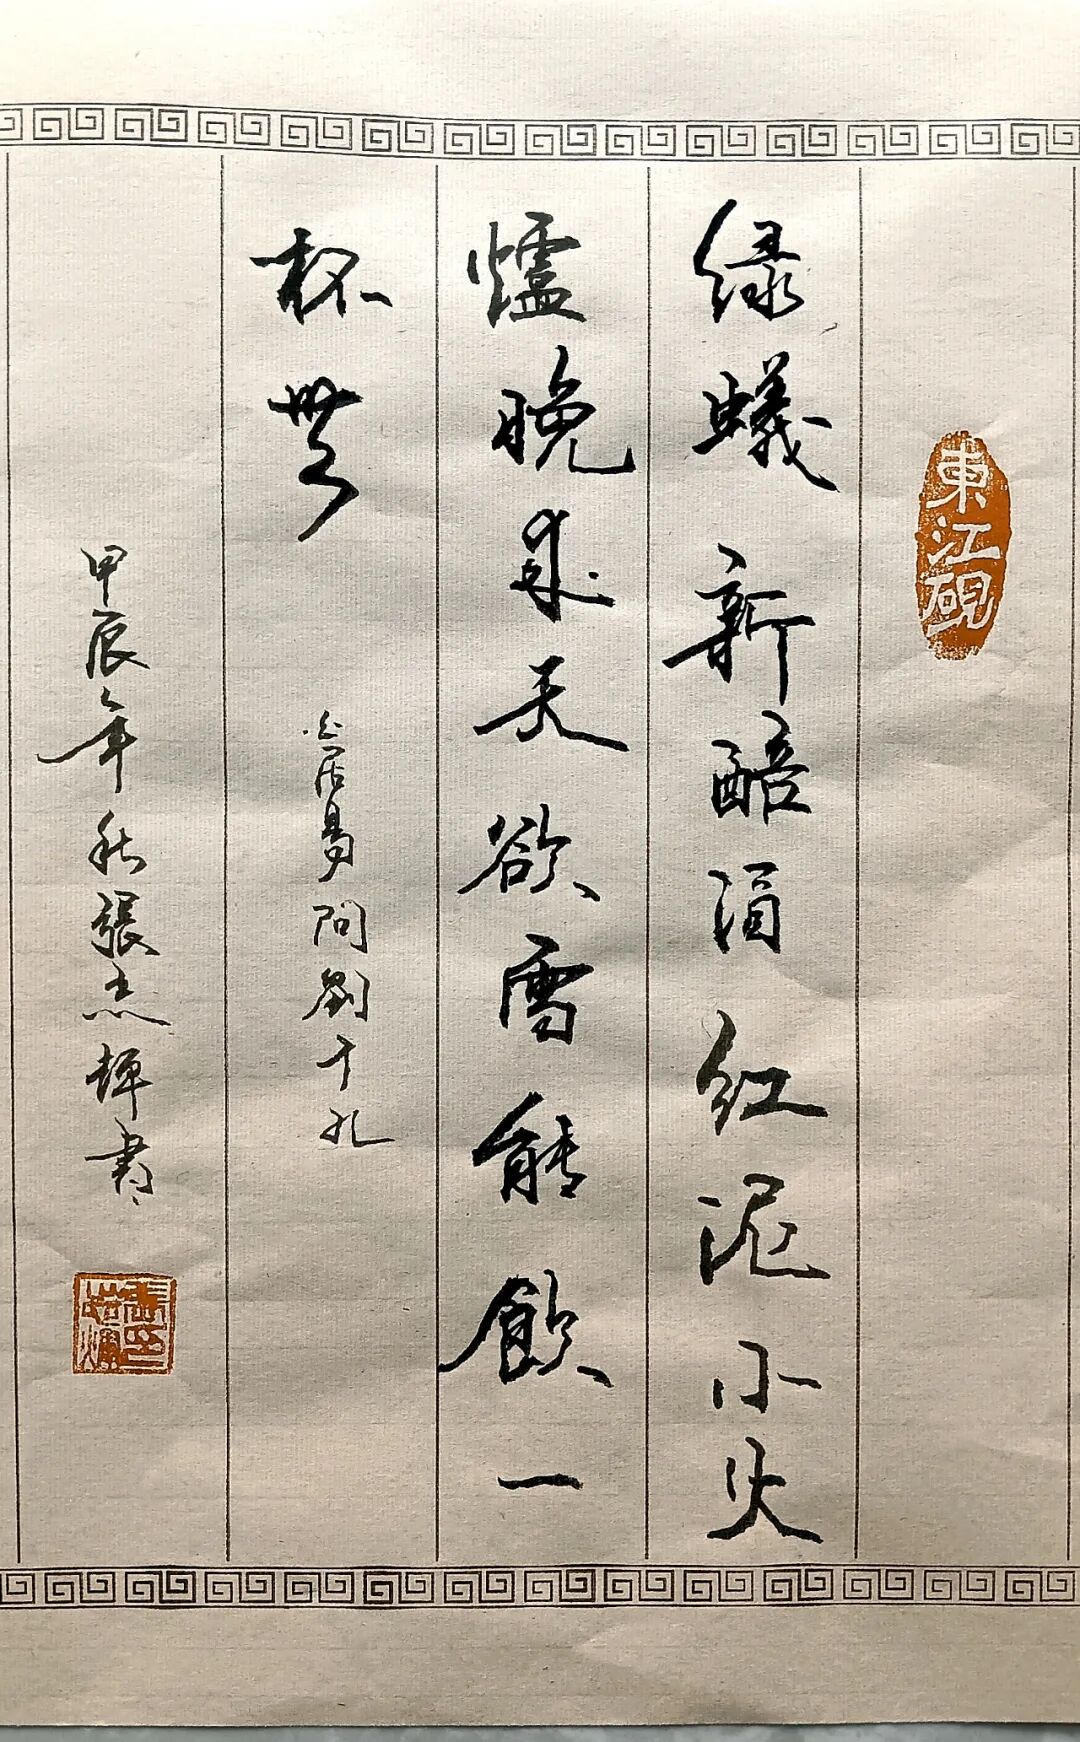 東江硯
绿蟻新醅酒红泥小火
爐晚来天欲雪能飲一
杯無
白居易問劉十九
甲辰年秋張
書